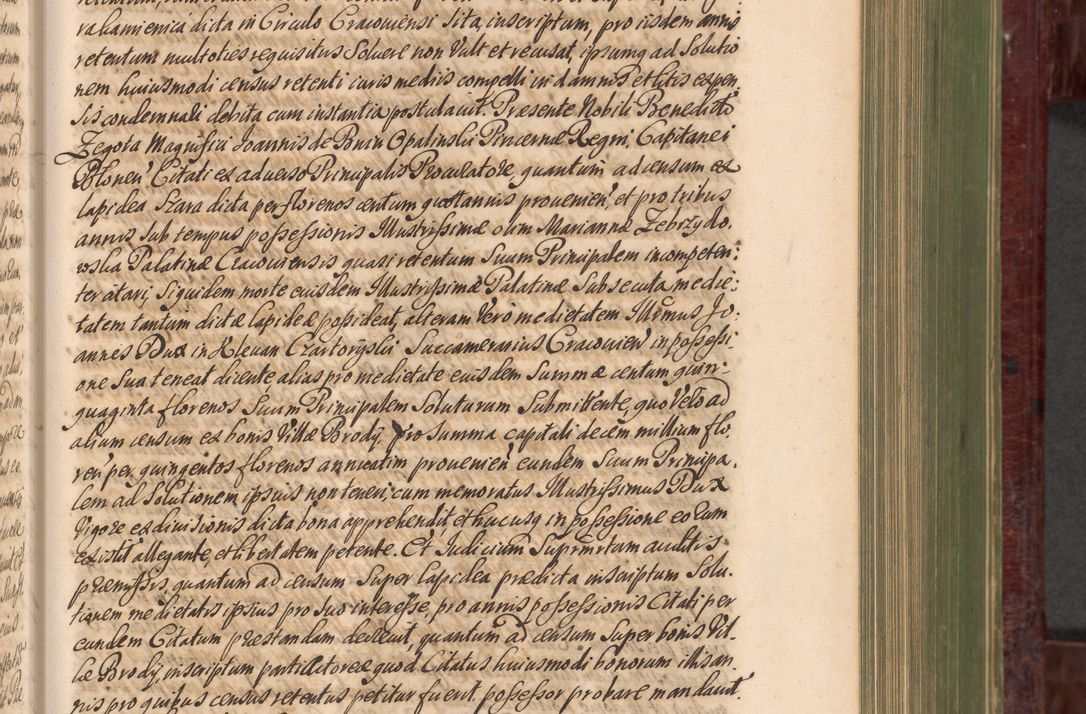 varamienica dicta in Circulo Cracoviensi Sita, inscriptum, pro iisdem annis
retentum multoties requisitus Solvere non Vult et recusat, ipsumq ad Solutio
nem huiusmodi census retenti iuris mediis compelli in damnis et litis expen
sis condemnati debita cum instantia postulavit. Præsente Nobili Benedicto
Zegota Magnifici Joannis de Bnin Opalinskii Pincernæ Regni, Capitanei
Plonen Citati ex adverso Principalis Procuratore, quantum ad censum ex
lapidea Szara dicta per florenos centum quotannis provenien, et pro tribus
annis Sub tempus possessionis Illustrissimæ olim Mariannæ Zebrzydo,
wska Palatinæ Cracoviensis quasi retentum Suum Principalem incompeten:
ter citari, Siquidem morte eiusdem Illustrissimæ Palatinæ Subsecuta medie:
tatem tantum dictæ lapideæ possideat, alteram Vero medietatem Illrmus Jo:
annes Dux in Klevan Czartoryskii Succamerarius Cracovien in possessi,
one Sua teneat dicente alias pro medietate eiusdem Summæ centum quin-
quaginta florenos Suum Principalem Soluturum Submittente, quo Vero ad
alium censum ex bonis Villæ Brody pro Summa capitali decem millium flo
ren per quingentos florenos annuatim provenien eundem Suum Principa,
lem ad Solutionem ipsius non teneri, cum memoratus Illustrissimus Dux
Vigore ex divisionis dicta bona apprehendit, et hucusq in possessione eorum
existit allegante, et libertatem petente. Et Judicium Suprmrtum auditis
præmissis, quantum ad censum Super lapidea prædicta inscriptum Solu,
tionem medietatis ipsius pro Suo interesse, pro annis possessionis Citati per
eundem Citatum præstandam decrevit, quantum ad censum Super bonis Vil-
læ Brody, inscriptum parti Actoreæ quod Citatus huiusmodi bonorum illis an
nis pro quibus census retentus petitur fuerit possessor probare mandavit.